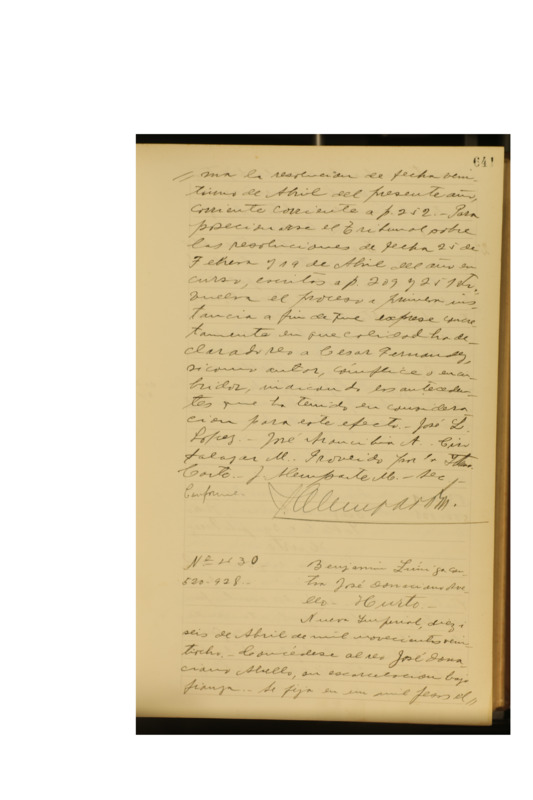 641
ma la resolucion de fecha vein-
tiuno de Abril del presente año,
corriente corriente a p. 252. - Para
posecionarse el Tribunal sobre
las resoluciones de fecha 25 de
Febrero y 19 de Abril del año en
curso, escritos a p. 209 y 251 de-
vuelva el proceso a primera ins-
tancia a fin de que exprese concre-
tamente en que calidad ha de-
clarado reo a Cesar Fernandez,
si como autor, cómplice o encu-
bridor, indicando los anteceden-
tes que ha tenido en considera
cion para este efecto. - José L.
Lopez. - José Arancibia A. - Ciro
Salazar M. Proveido por la Iltma.
Corte. - J Alemparte M. - Sec
Conforme.
J. Alemparte M.
Nº 30
520-928.
Benjamin con-
tra José Donaciano Abe-
llo - Hurto -
Nueva Imperial, diez i
seis de Abril de mil novecientos vein-
tiocho. - Concédese al reo José Dona-
ciano Abello, su escarcelacion bajo
fianza. - Se fija en un mil pesos el